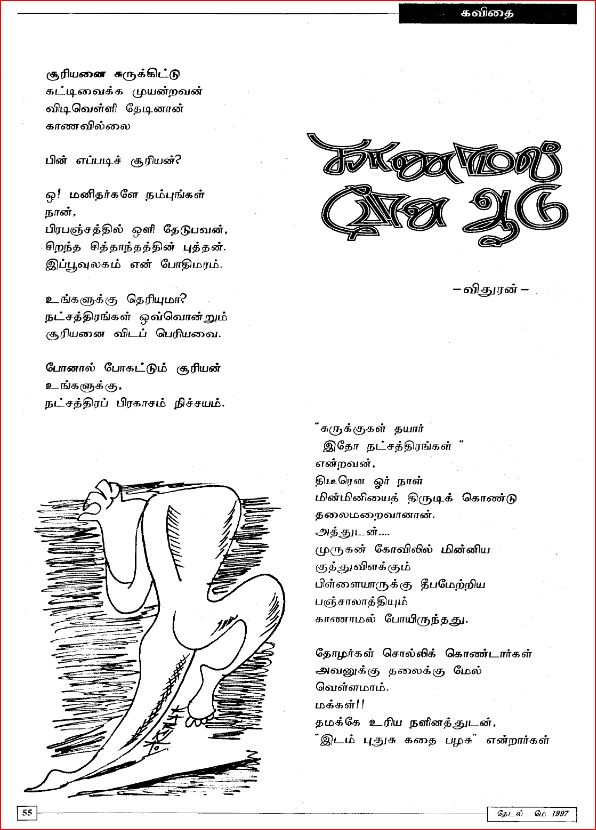 கவிதை
காணாமல்
போன ஆடு
–விதுரன்–
சூரியனை சுருக்கிட்டு
கட்டிவைக்க முயன்றவன்
விடிவெள்ளி தேடினான்
காணவில்லை
பின் எப்படிச் சூரியன்?
ஒ! மனிதர்களே நம்புங்கள்
நான்,
பிரபஞ்சத்தில் ஒளி தேடுபவன்,
சிறந்த சித்தாந்தத்தின் புத்தன்.
இப்பூவுலகம் என் போதிமரம்.
உங்களுக்கு தெரியுமா?
நட்சத்திரங்கள் ஒவ்வொன்றும்
சூரியனை விடப் பெரியவை.
போனால் போகட்டும் சூரியன்
உங்களுக்கு,
நட்சத்திரப் பிரகாசம் நிச்சயம்.
"சுருக்குகள் தயார்
இதோ நட்சத்திரங்கள் "
என்றவன்,
திடீரென ஓர் நாள்
மின்மினியைத் திருடிக் கொண்டு
தலைமறைவானான்.
அத்துடன்....
முருகன் கோவிலில் மின்னிய
குத்துவிளக்கும்
பிள்ளையாருக்கு தீபமேற்றிய
பஞ்சாலாத்தியும்
காணாமல் போயிருந்தது.
தோழர்கள் சொல்லிக் கொண்டார்கள்
அவனுக்கு தலைக்கு மேல்
வெள்ளமாம்.
மக்கள்!!
தமக்கே உரிய நளினத்துடன்,
"இடம் புதுசு கதை பழசு" என்றார்கள்
55
தேடல் மே 1997